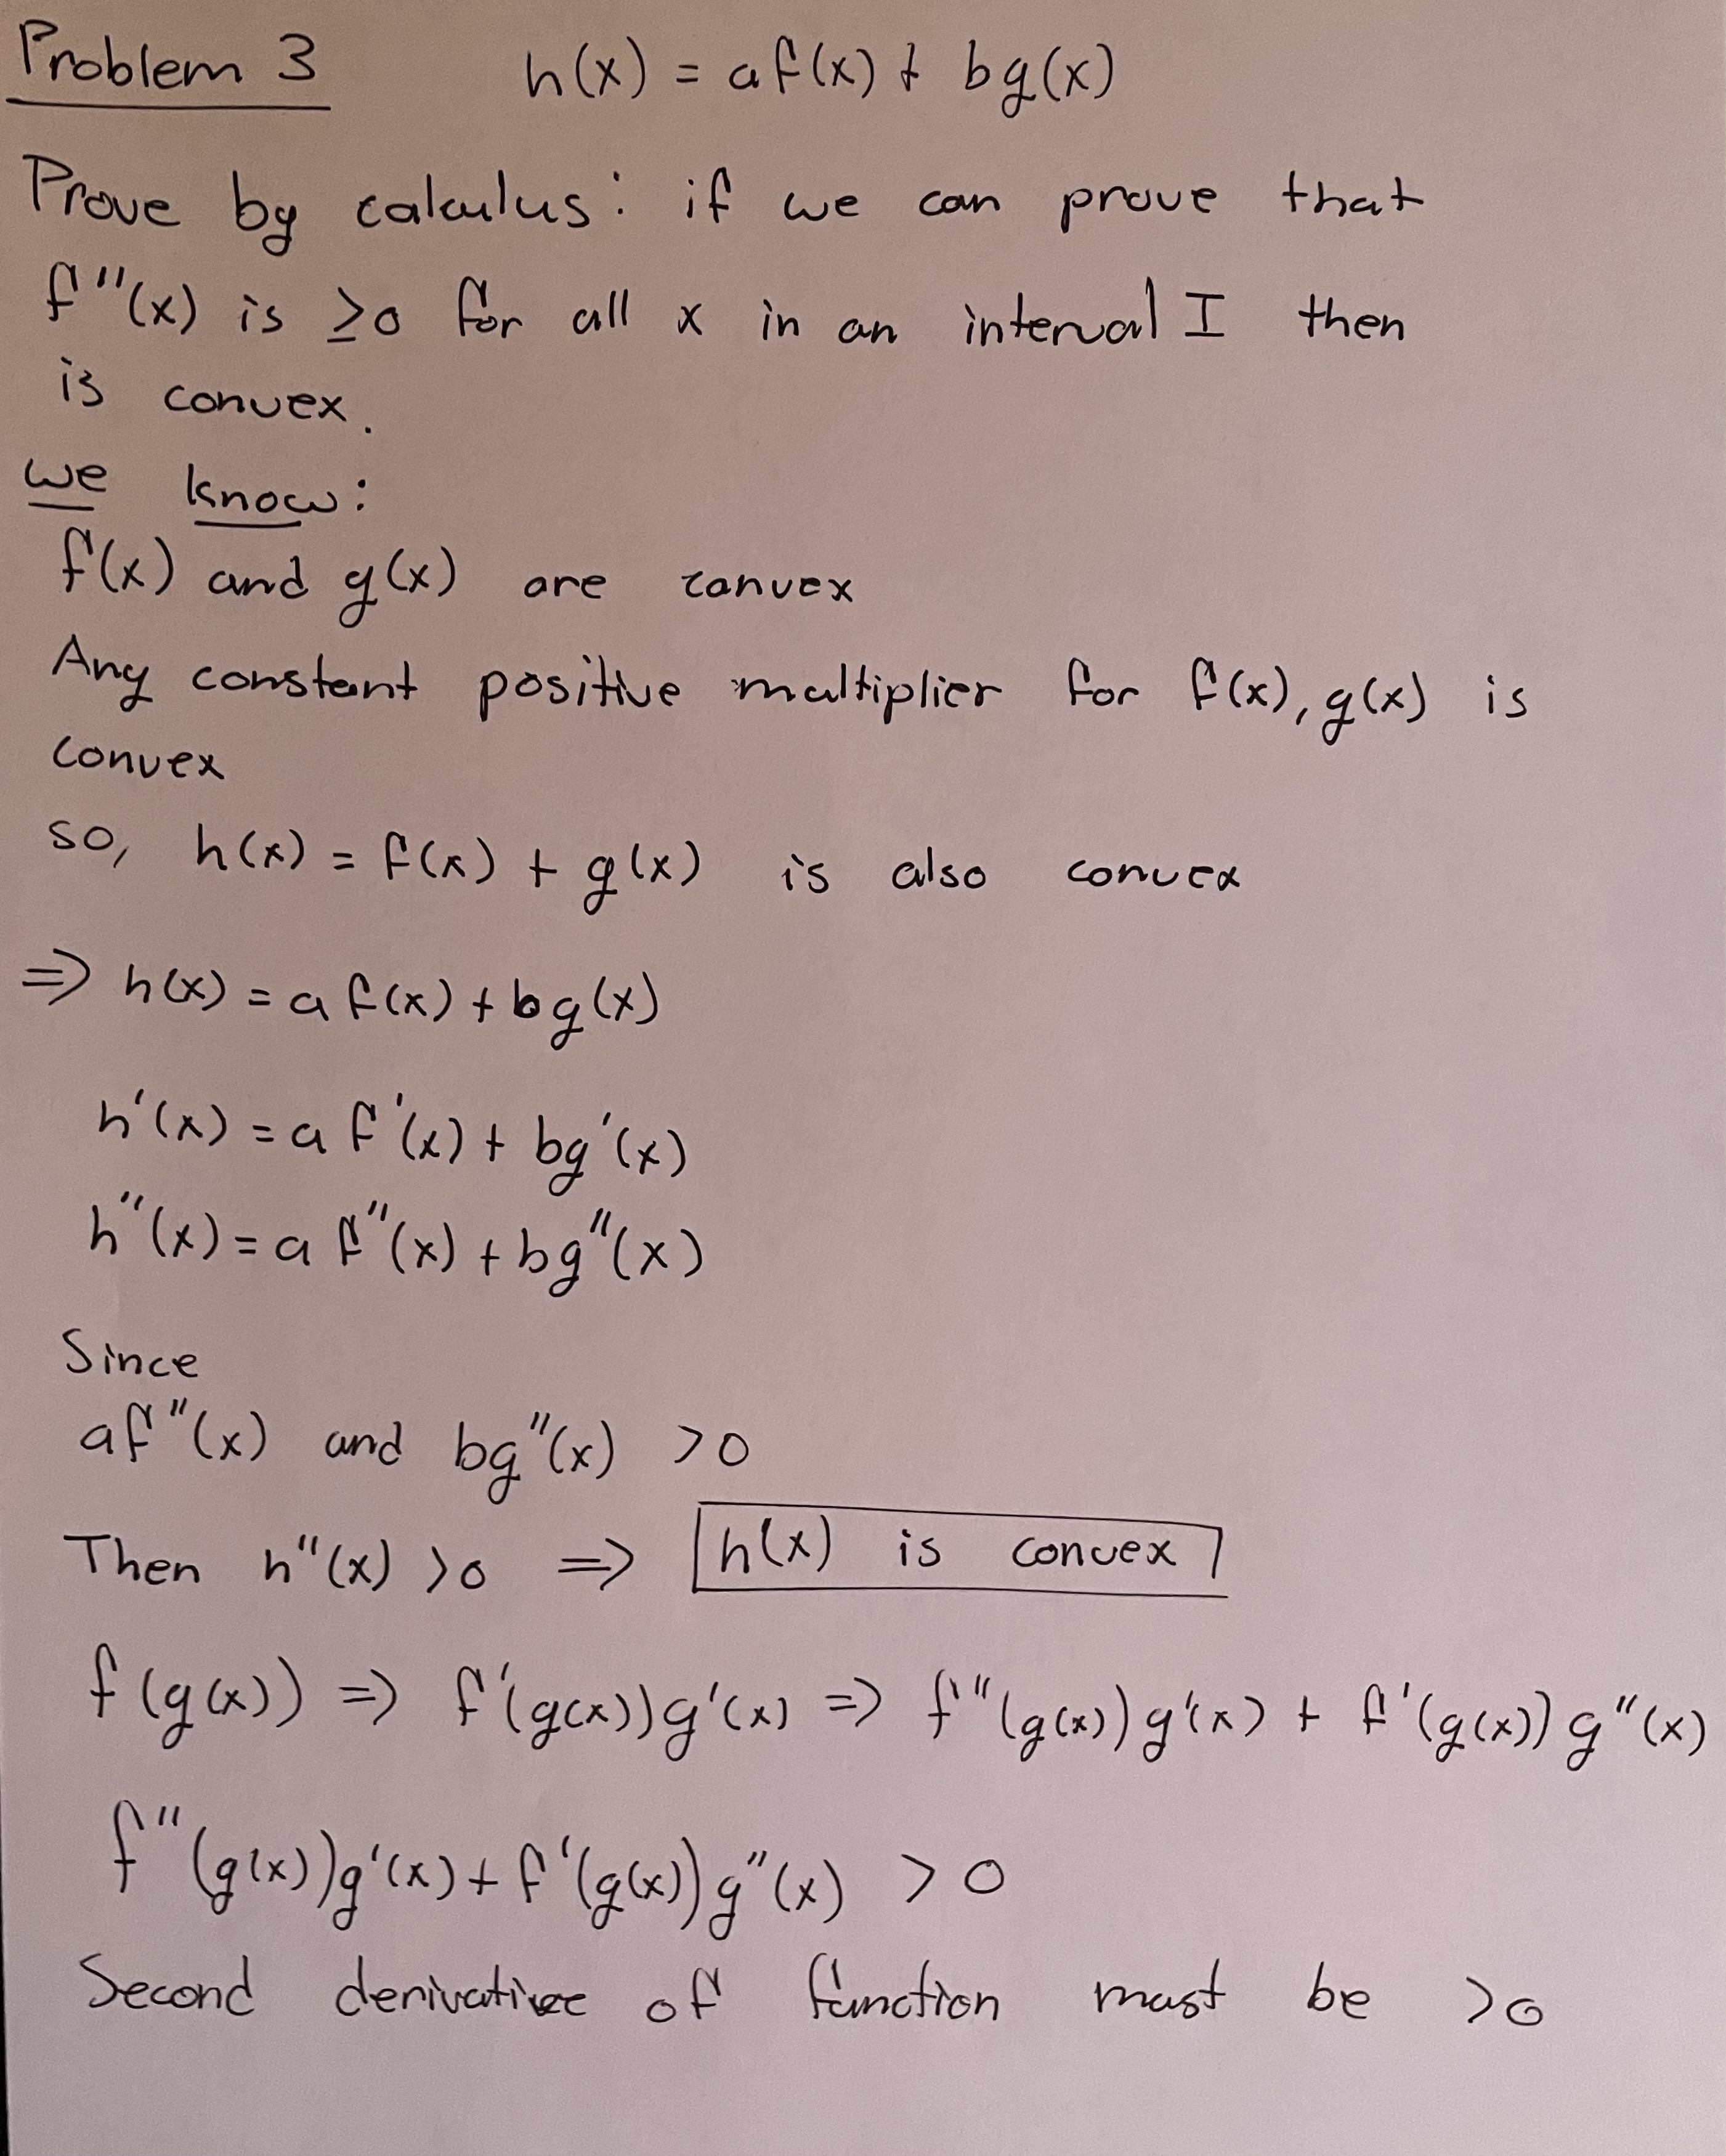 Problem 3 h(x) = af(x) + bg(x)
Prove by calculus: if we can prove that
f''(x) is ≥0 for all x in an interval I then
is convex.
we know:
f(x) and g(x) are convex
Any constant positive multiplier for f(x), g(x) is
convex
so, h(x) = f(x) + g(x) is also convex
=> h(x) = a f(x) + bg(x)
h'(x) = a f'(x) + bg'(x)
h''(x) = a f''(x) + bg''(x)
Since
af''(x) and bg''(x) >0
Then h''(x) >0 => h(x) is convex
f(g(x)) => f'(g(x))g'(x) => f''(g(x))g'(x) + f'(g(x))g''(x)
f''(g(x))g'(x) + f'(g(x))g''(x) > 0
Second derivative of function must be >0